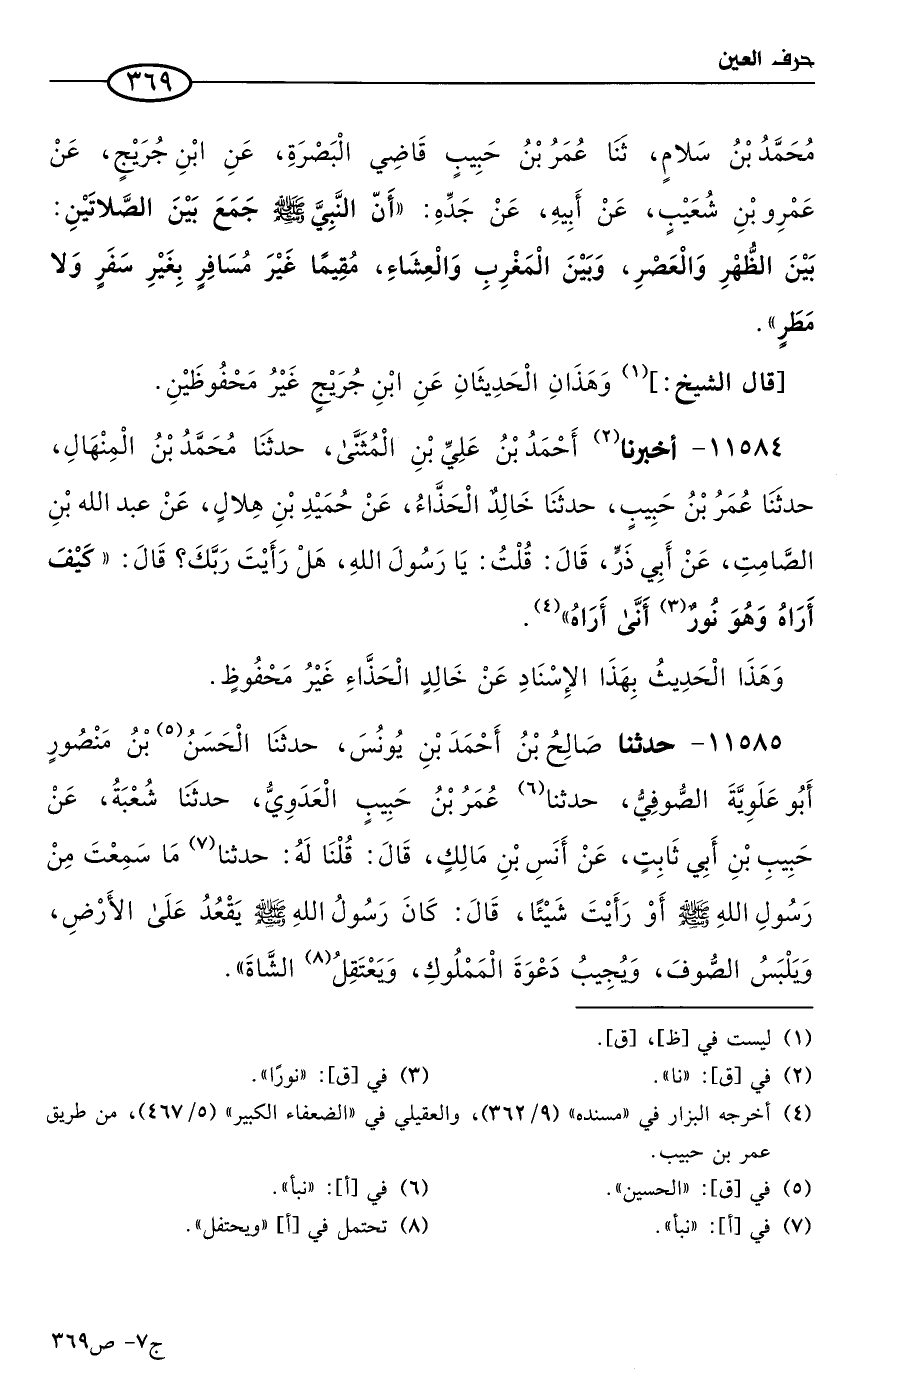 حرف العين
٣٦٩
مُحَمَّدُ بْنُ سَلامٍ، ثَنَا عُمَرُ بْنُ حَبِيبٍ قَاضِي الْبَصْرَةِ، عَنِ ابْنِ جُرَيْجٍ، عَنْ
عَمْرِو بْنِ شُعَيْبٍ، عَنْ أَبِيهِ، عَنْ جَدِّهِ: «أَنّ النَّبِيَّ ﷺ جَمَعَ بَيْنَ الصَّلاتَيْنِ:
بَيْنَ الظُّهْرِ وَالْعَصْرِ، وَبَيْنَ الْمَغْرِبِ وَالْعِشَاءِ، مُقِيمًا غَيْرَ مُسَافِرٍ بِغَيْرِ سَفَرٍ وَلا
مَطَرٍ».
[قال الشيخ:](١) وَهَذَانِ الْحَدِيثَانِ عَنِ ابْنِ جُرَيْجٍ غَيْرُ مَحْفُوظَيْنِ.
١١٥٨٤- أخبرنا(٢) أَحْمَدُ بْنُ عَلِيِّ بْنِ الْمُثَنَّىٰ، حدثَنَا مُحَمَّدُ بْنُ الْمِنْهَالِ،
حدثَنَا عُمَرُ بْنُ حَبِيبٍ، حدثَنَا خَالِدٌ الْحَذَّاءُ، عَنْ حُمَيْدِ بْنِ هِلالٍ، عَنْ عبد الله بْنِ
الصَّامِتِ، عَنْ أَبِي ذَرٍّ، قَالَ: قُلْتُ: يَا رَسُولَ اللهِ، هَلْ رَأَيْتَ رَبَّكَ؟ قَالَ: «كَيْفَ
أَرَاهُ وَهُوَ نُورٌ(٣) أَنَّىٰ أَرَاهُ»(٤).
وَهَذَا الْحَدِيثُ بِهَذَا الإِسْنَادِ عَنْ خَالِدٍ الْحَذَّاءِ غَيْرُ مَحْفُوظٍ.
١١٥٨٥- حدثنا صَالِحُ بْنُ أَحْمَدَ بْنِ يُونُسَ، حدثَنَا الْحَسَنُ(٥) بْنُ مَنْصُورٍ
أَبُو عَلَوِيَّةَ الصُّوفِيُّ، حدثنا(٦) عُمَرُ بْنُ حَبِيبٍ الْعَدَوِيُّ، حدثَنَا شُعْبَةُ، عَنْ
حَبِيبِ بْنِ أَبِي ثَابِتٍ، عَنْ أَنَسِ بْنِ مَالِكٍ، قَالَ: قُلْنَا لَهُ: حدثنا(٧) مَا سَمِعْتَ مِنْ
رَسُولِ اللهِ ﷺ أَوْ رَأَيْتَ شَيْئًا، قَالَ: كَانَ رَسُولُ اللهِ ﷺ يَقْعُدُ عَلَىٰ الأَرْضِ،
وَيَلْبَسُ الصُّوفَ، وَيُجِيبُ دَعْوَةَ الْمَمْلُوكِ، وَيَعْتَقِلُ(٨) الشَّاةَ».
(١) ليست في [ظ]، [ق].
(٢) في [ق]: «نا».
(٣) في [ق]: «نورًا».
(٤) أخرجه البزار في «مسنده» (٣٦٢/٩)، والعقيلي في «الضعفاء الكبير» (٤٦٧/٥)، من طريق
عمر بن حبيب.
(٥) في [ق]: «الحسين».
(٦) في [أ]: «نبأ».
(٧) في [أ]: «نبأ».
(٨) تحتمل في [أ] «ويحتفل».
ج٧- ص٣٦٩